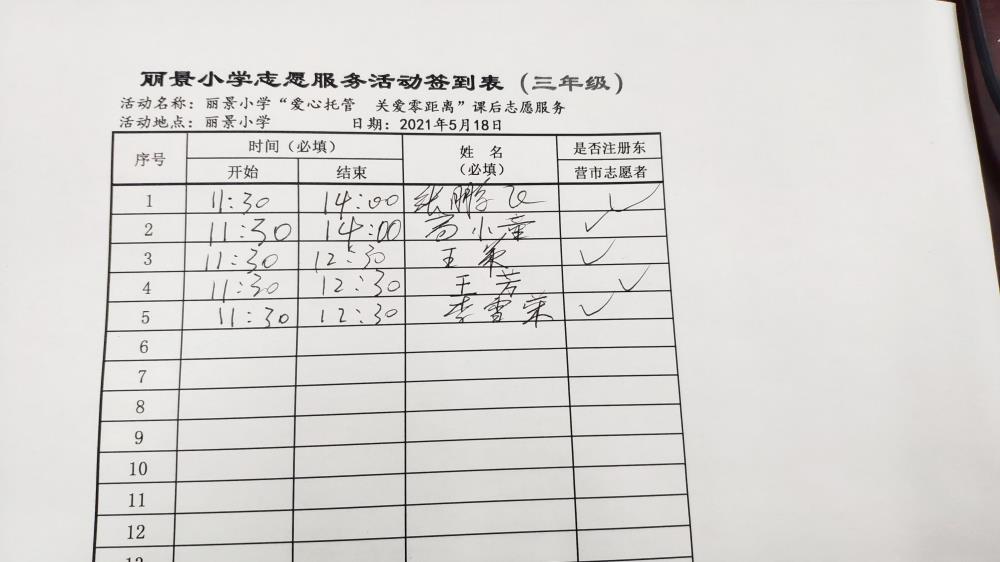 丽景小学志愿服务活动签到表（三年级）
活动名称：丽景小学“爱心托管 关爱零距离”课后志愿服务
活动地点：丽景小学 日期：2021年5月18日
序号 时间（必填） 姓 名（必填） 是否注册东营市志愿者
开始 结束
1 11:30 14:00 张鹏飞 ✓
2 11:30 14:00 高小童 ✓
3 11:30 12:30 王 ✓
4 11:30 12:30 王芳 ✓
5 11:30 12:30 李雪荣 ✓
6
7
8
9
10
11
12
13